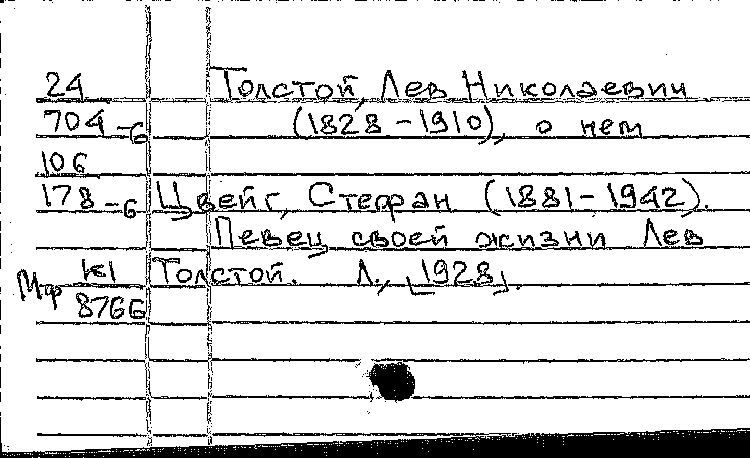 24 Толстой, Лев Николаевич
704-б (1828-1910), о нем
106
178-б Цвейг, Стефан (1881-1942).
Певец своей жизни Лев
Мф K1 Толстой. Л., [1928].
8766